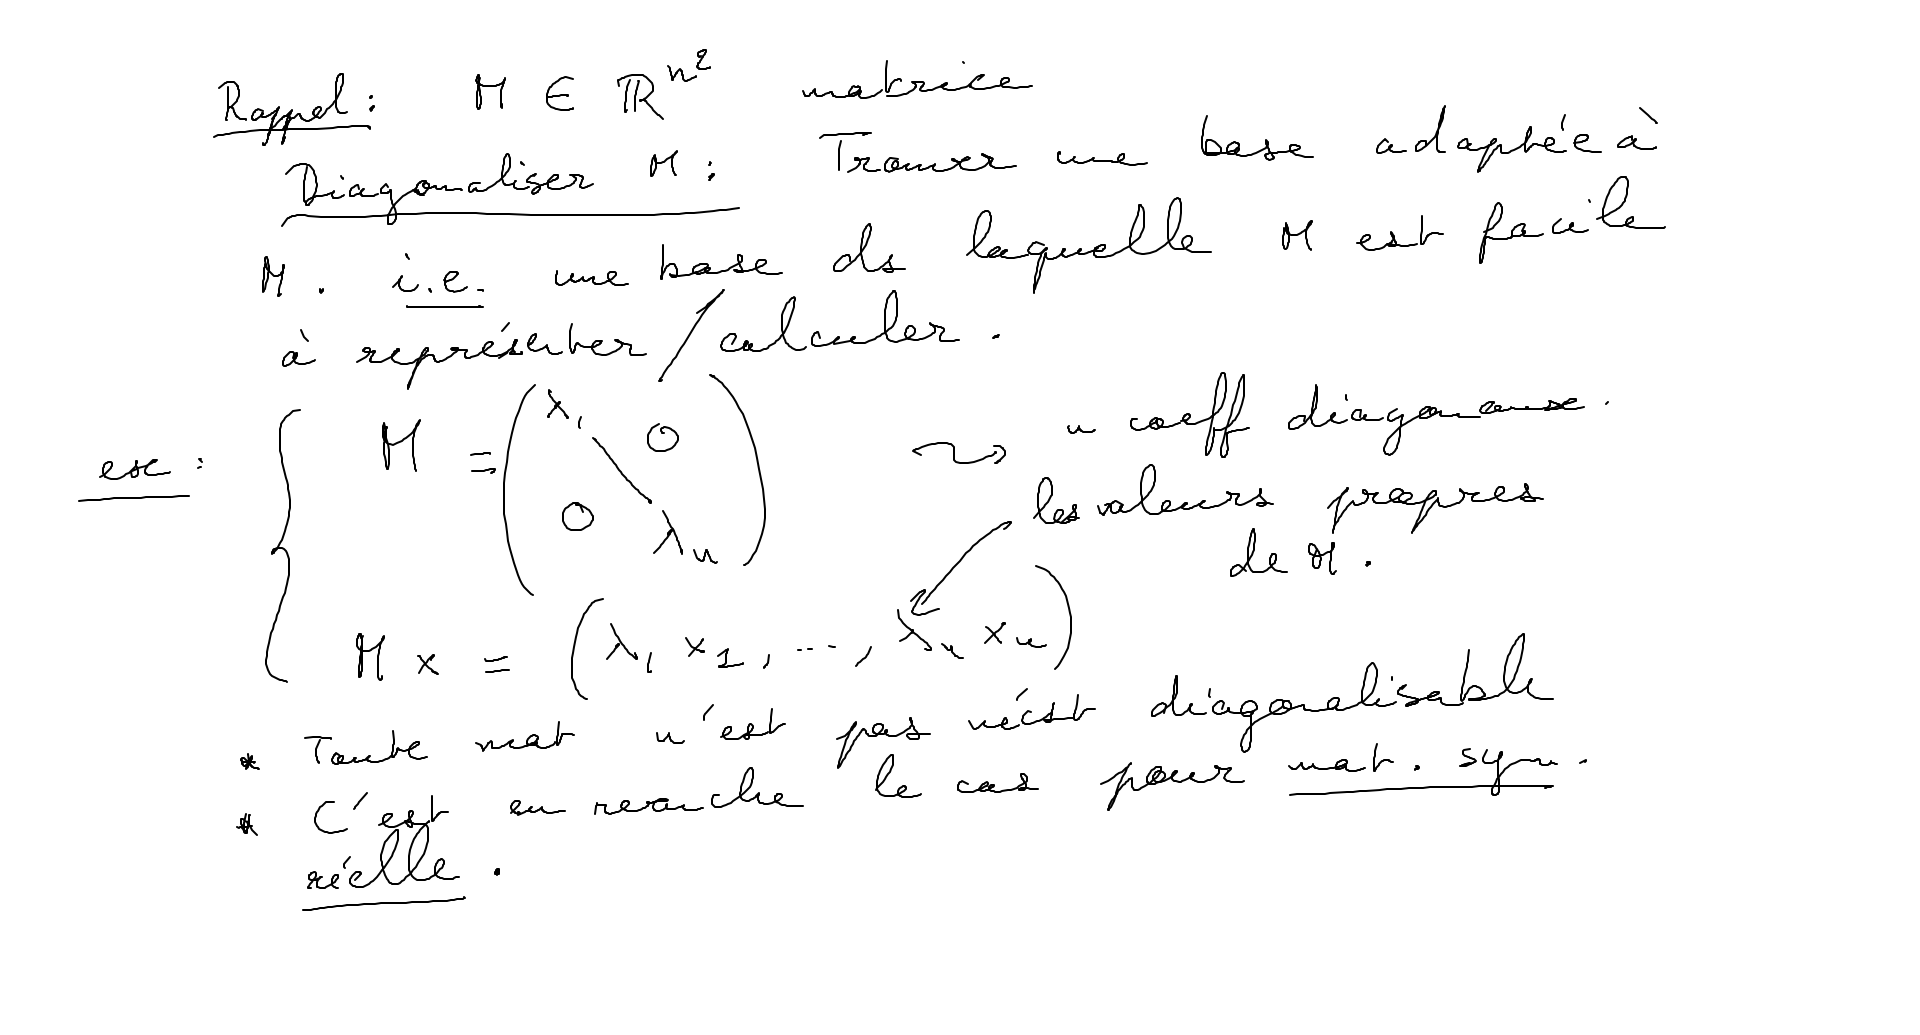 Rappel : M ∈ ℝ^{n²} matrice
Diagonaliser M : Trouver une base adaptée à
M . i.e. une base ds laquelle M est facile
à représenter / calculer .
ex : { M = ( λ₁ 0 0 λₙ ) ⤳ n coeff diagonaux .
les valeurs propres
de M .
M x = ( λ₁ x₁ , ... , λₙ xₙ )
* Toute mat n'est pas nécst diagonalisable
* C'est en revanche le cas pour mat . sym .
réelle .